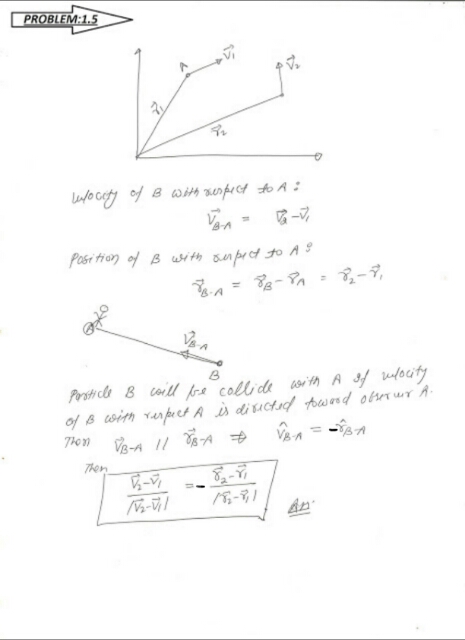 PROBLEM:1.5
A
v⃗₁
v⃗₂
r⃗₁
r⃗₂
Velocity of B with respect to A :
V⃗B-A = v⃗₂ - v⃗₁
Position of B with respect to A :
r⃗B-A = r⃗B - r⃗A = r⃗₂ - r⃗₁
A
V⃗B-A
B
Particle B will be collide with A if velocity
of B with respect A is directed toward observer A.
Then V⃗B-A || r⃗B-A ⇒ V̂B-A = -r̂B-A
Then
(v⃗₂ - v⃗₁)/|v⃗₂ - v⃗₁| = - (r⃗₂ - r⃗₁)/|r⃗₂ - r⃗₁| Ans.